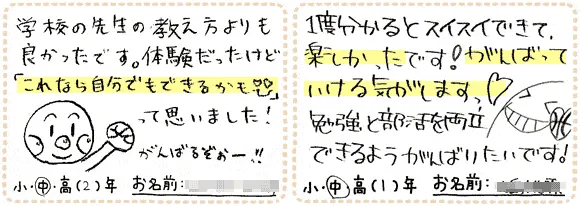 学校の先生の教え方よりも
良かったです。体験だったけど
「これなら自分でもできるかも♡♡」
って思いました!
がんばるぞぉー!!
小・中・高(2)年 お名前:
1度分かるとスイスイできて、
楽しかったです!がんばって
いける気がします♡
勉強と部活を両立
できるようがんばりたいです!
小・中・高(1)年 お名前: